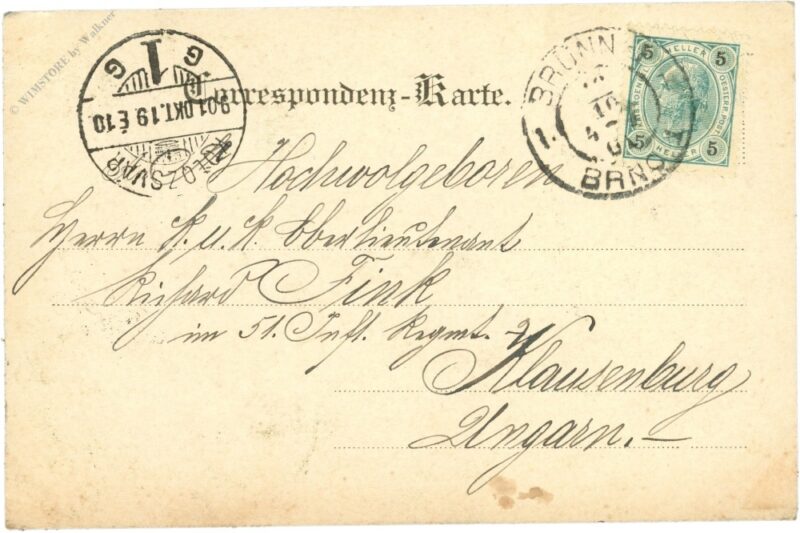 © WIMSTORE by Walkner
1
G G
901 OKT. 19 É 10
KOLOZSVÁR
Correspondenz-Karte.
BRÜNN
1.
BRNO
5 HELLER 5
5 HELLER 5
OESTERR. POST
Hochwolgeboren
Herrn k. u. k. Oberlieutenant
Richard Fink
im 51. Inft. Regmt.
Klausenburg
Ungarn.—